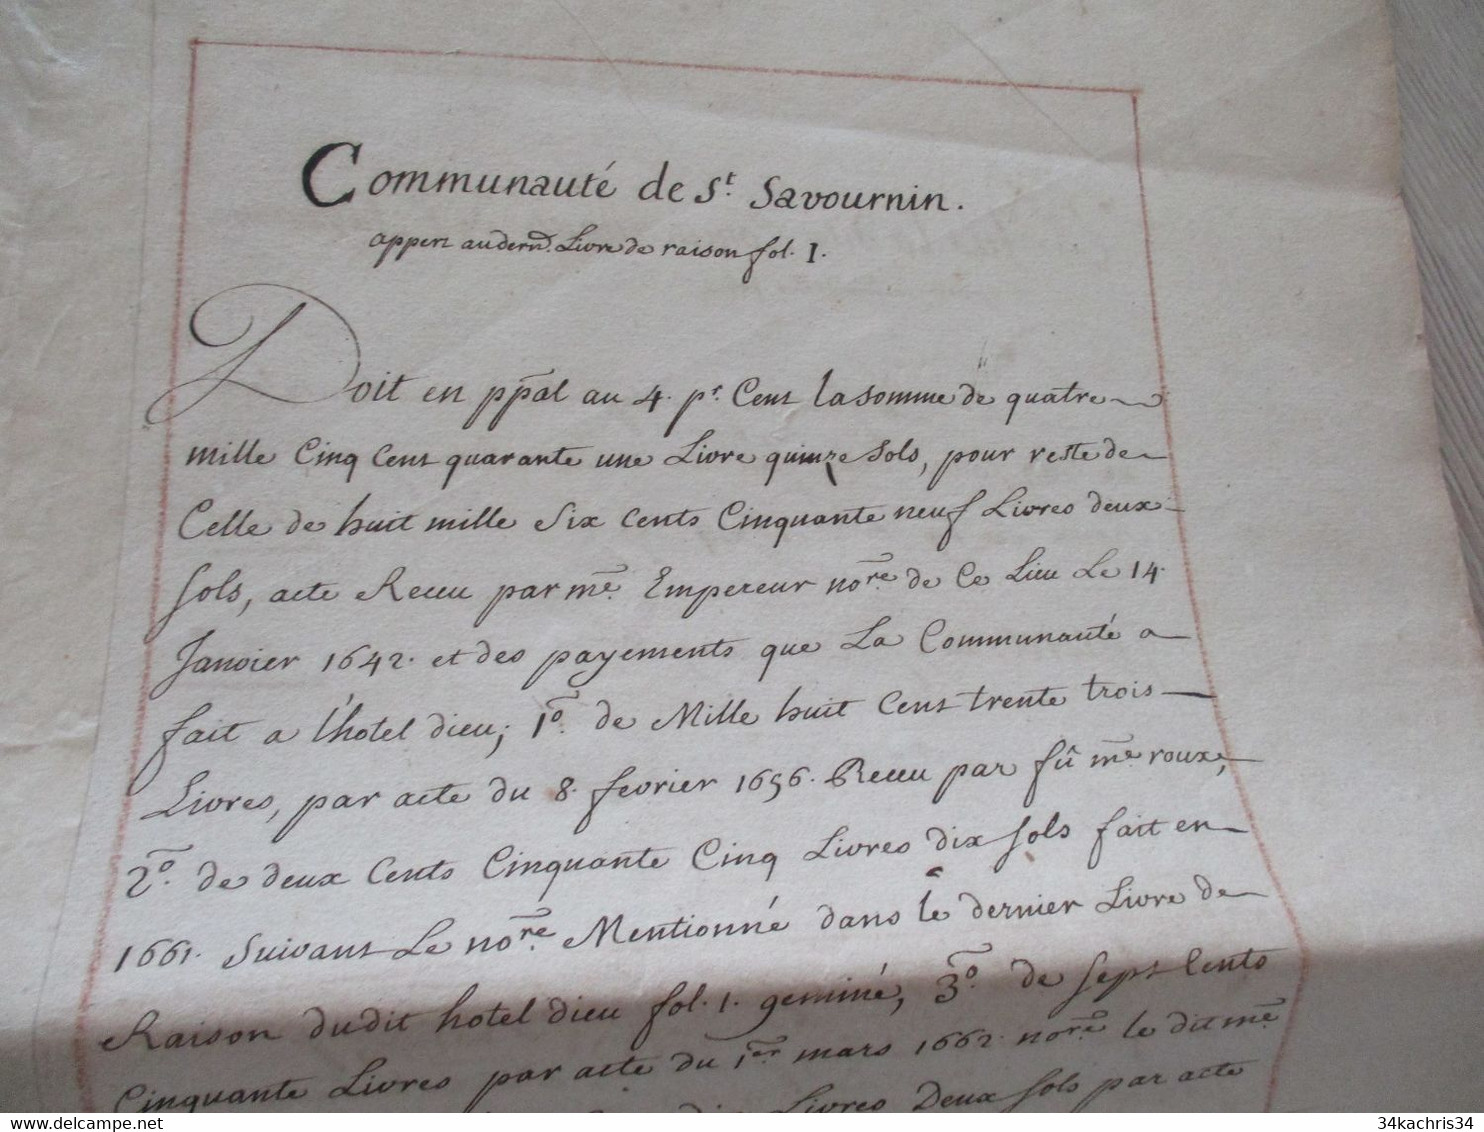 Communauté de St. Savournin.
appert au dernr. Livre de raison fol. 1.
Doit en ppal au 4. pr. Cent la somme de quatre
mille Cinq Cent quarante une Livre quinze Sols, pour reste de
Celle de huit mille Six Cents Cinquante neuf Livres deux
sols, acte Receu par me. Empereur nore. de Ce Lieu Le 14.
Janvier 1642. et des payements que La Communauté a
fait a l'hotel dieu; 1o. de Mille huit Cent trente trois
Livres, par acte du 8. fevrier 1656. Receu par fû me. roux,
2o. de deux Cents Cinquante Cinq Livres dix sols fait en
1661. Suivant Le nore. Mentionné dans le dernier Livre de
Raison dudit hotel dieu fol. 1. geminé, 3o. de sept Cents
Cinquante Livres par acte du 1er. mars 1662. nore. le dit me.
Livres Deux sols par acte
34kachris34